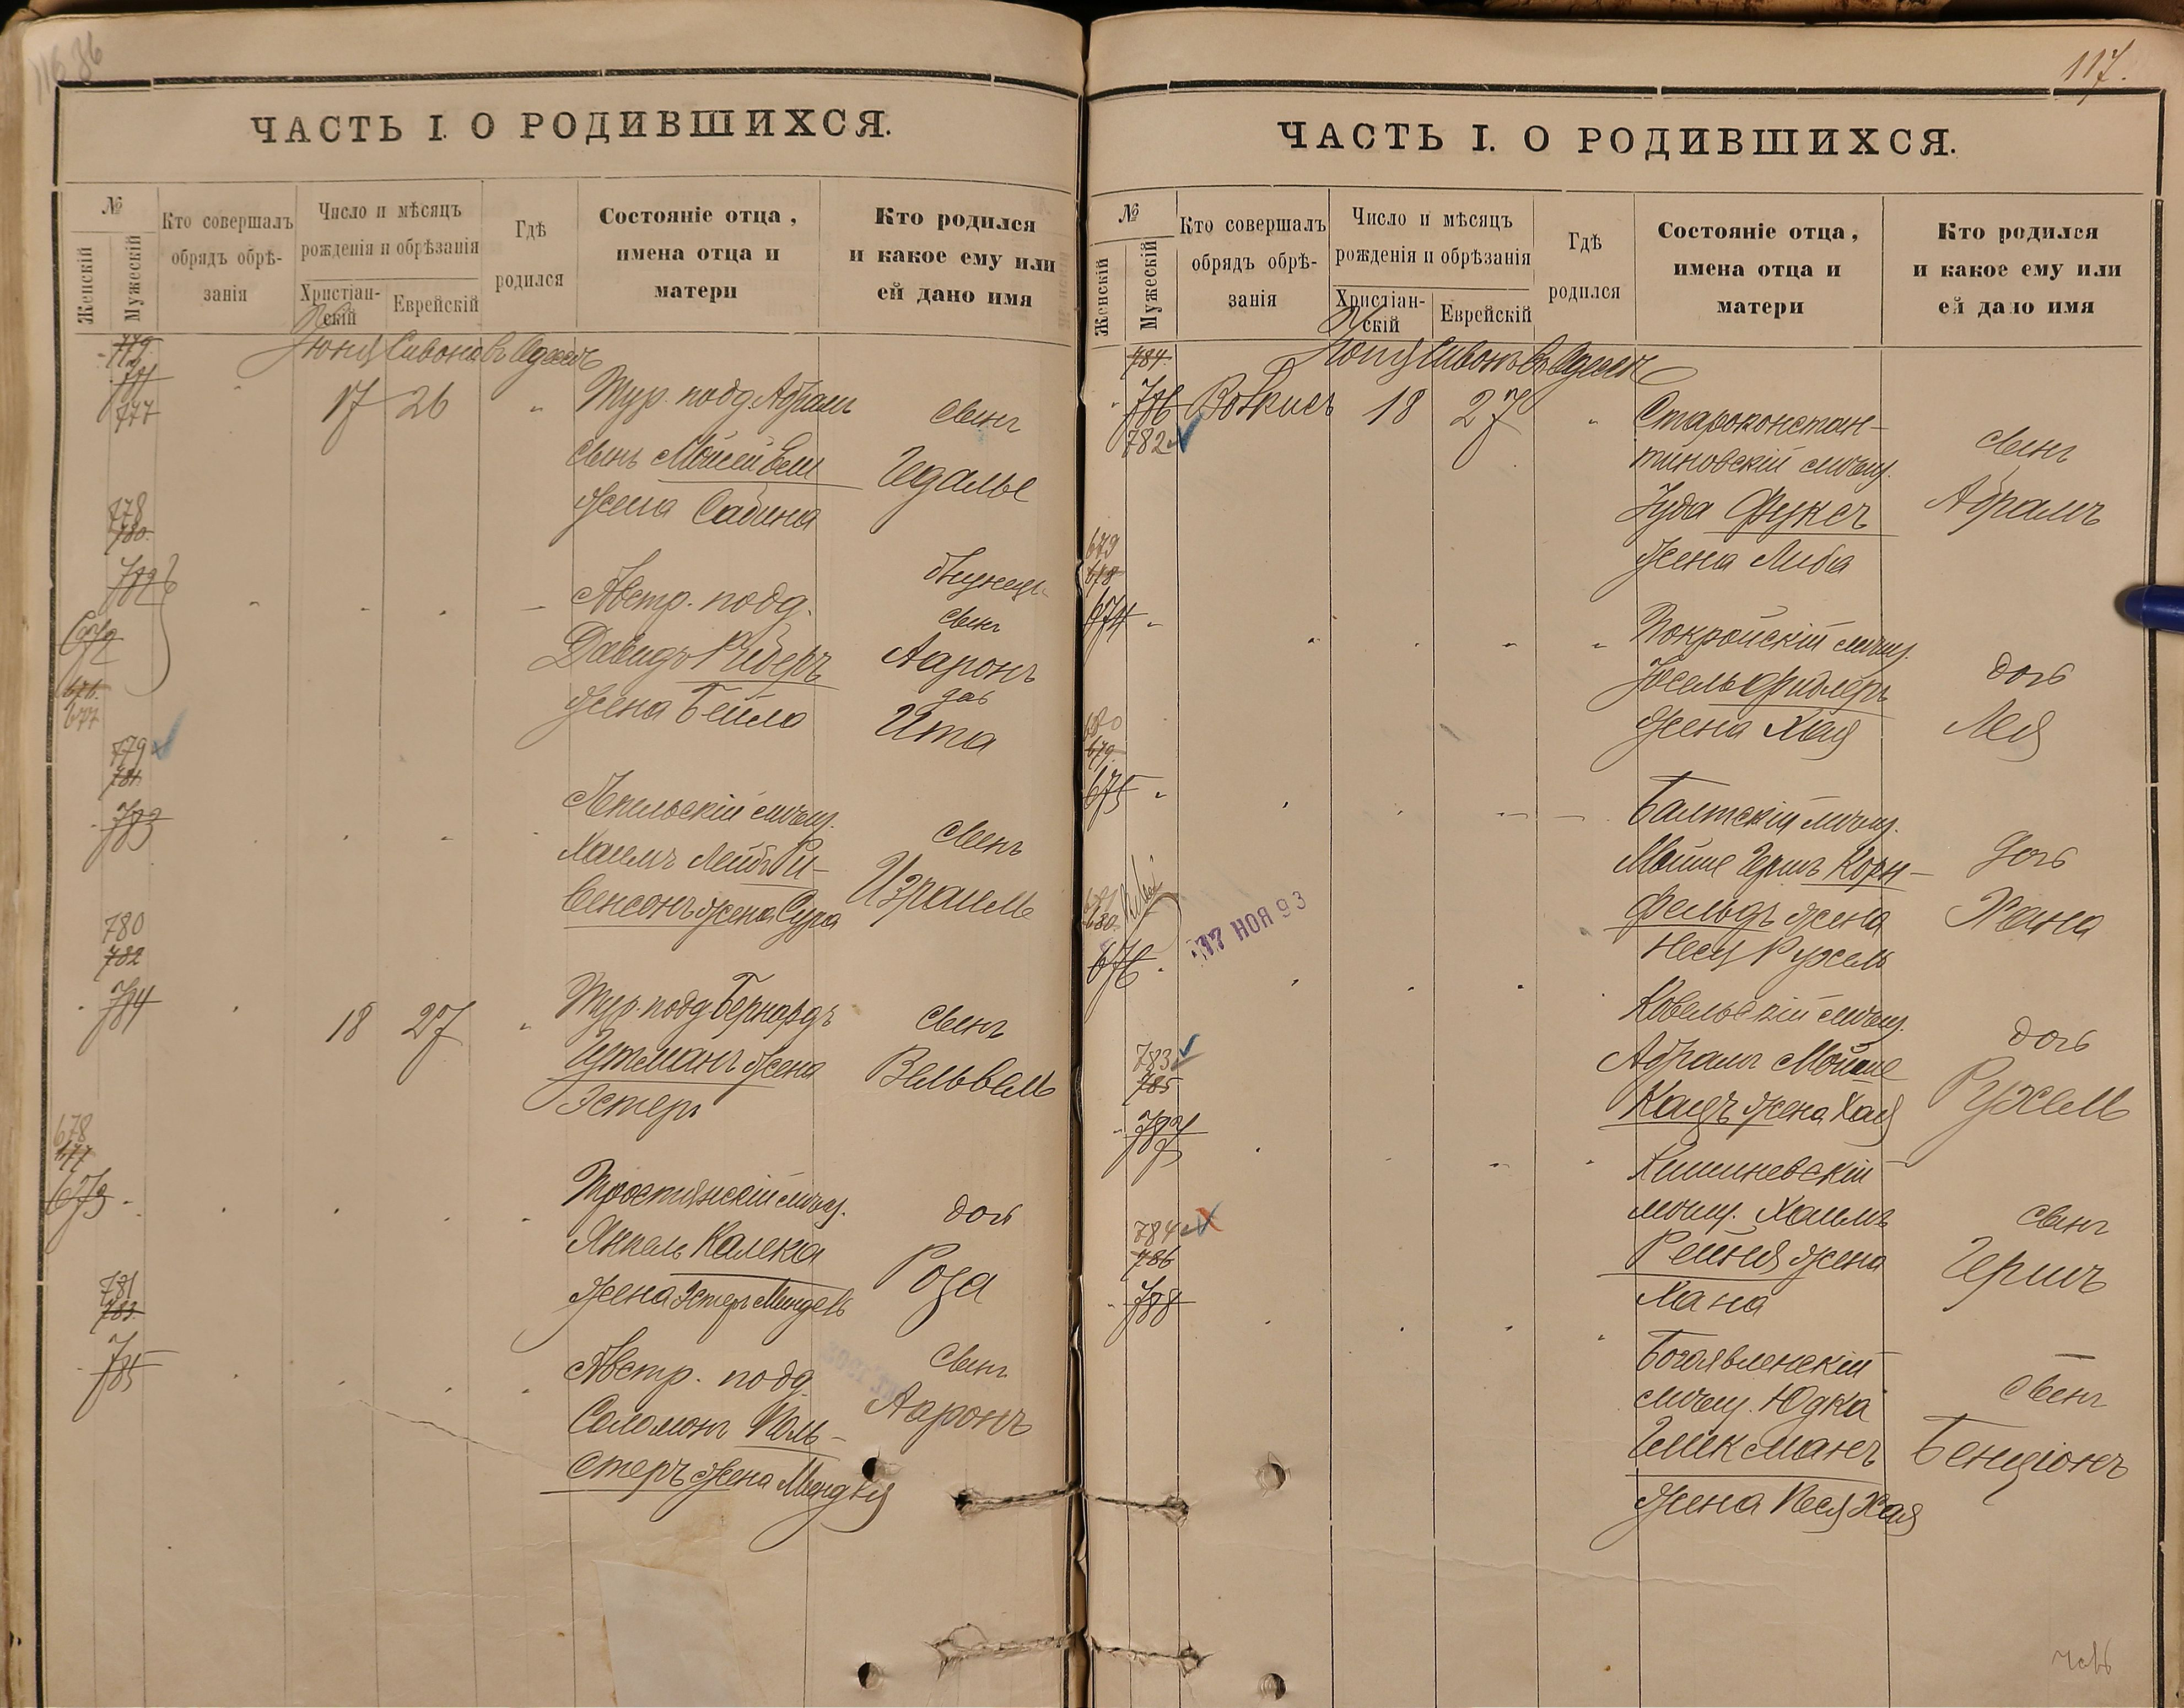 117.
ЧАСТЬ I. О РОДИВШИХСЯ.
№
Женскій
Мужескій
Кто совершалъ
обрядъ обрѣ-
занія
Число и мѣсяцъ
рожденія и обрѣзанія
Христіан-
скій
Еврейскій
Гдѣ
родился
Состояніе отца,
имена отца и
матери
Кто родился
и какое ему или
ей дано имя
Іюня Сивона въ Одессѣ
777
17 26
Тур. подд. Абрамъ
сынъ Мойсей
жена Сабина
сынъ
Гедалье
778
780
Австр. подд.
Давидъ
жена Бейла
сынъ
Ааронъ
дочь
Ита
677
779
781
783
мѣщ.
Хаимъ Лейбъ Ри-
венсонъ жена Сура
сынъ
Израиль
780
782
784
18 27
Тур. подд. Бернардъ
Гутманъ жена
Эстеръ
сынъ
Вельвель
678
677
673
Тростянскій мѣщ.
Янкель Калека
жена Эстеръ Миндель
дочь
Роза
781
783
785
Австр. подд.
Соломонъ Поль-
стеръ жена
сынъ
Ааронъ
ЧАСТЬ I. О РОДИВШИХСЯ.
№
Женскій
Мужескій
Кто совершалъ
обрядъ обрѣ-
занія
Число и мѣсяцъ
рожденія и обрѣзанія
Христіан-
скій
Еврейскій
Гдѣ
родился
Состояніе отца,
имена отца и
матери
Кто родился
и какое ему или
ей дано имя
Іюня Сивонъ въ Одессѣ
784
786
782
18 27
Староконстан-
тиновскій мѣщ.
Іуда Фуксъ
жена Либа
сынъ
Абрамъ
679
678
674
Покройскій мѣщ.
Іосель Фидлеръ
жена Хая
дочь
Лея
680
679
675
Балтскій мѣщ.
Мойше Гершъ Корн-
фельдъ жена
Неся Рухель
дочь
Хана
680
676
17 НОЯ 93
Ковельскій мѣщ.
Абрамъ Мойше
Кацъ жена Хая
дочь
Рухель
783
785
787
Кишиневскій
мѣщ. Хаимъ
Рейня жена
Хана
сынъ
Гершъ
784
786
788
Богоявленскій
мѣщ. Юдка
Гликсманъ
жена Песя Хая
сынъ
Бенціонъ